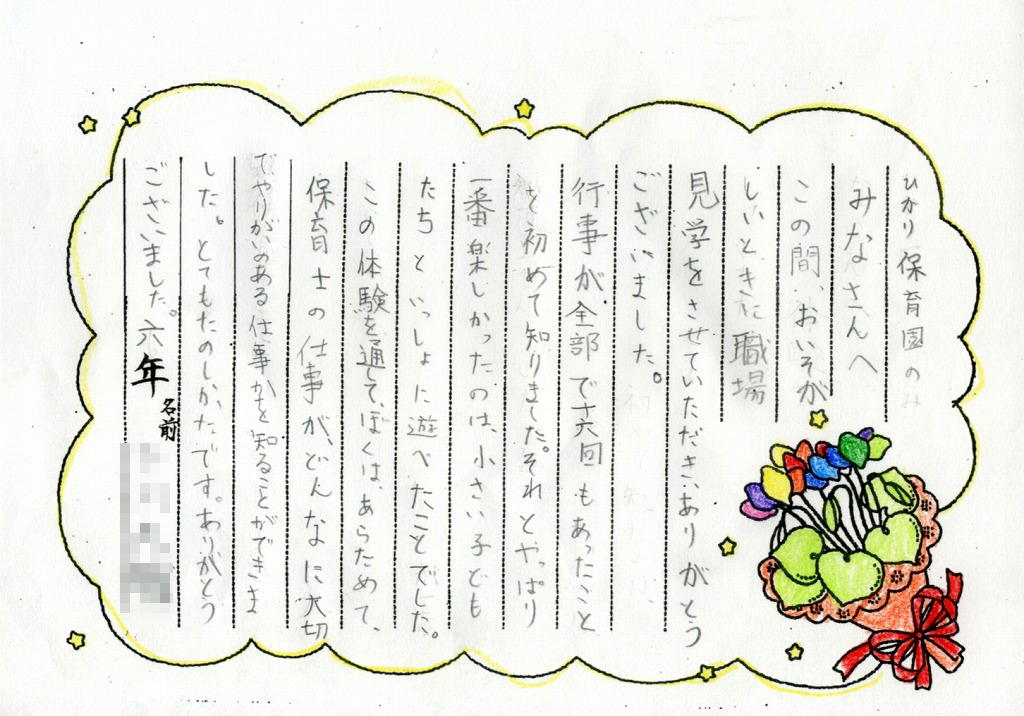 ひかり保育園のみ
みなさんへ
この間、おいそが
しいときに職場
見学をさせていただき、ありがとう
ございました。
行事が全部で十六回もあったこと
を初めて知りました。それとやっぱり
一番楽しかったのは、小さい子ども
たちといっしょに遊べたことでした。
この体験を通して、ぼくは、あらためて、
保育士の仕事が、どんなに大切
でやりがいのある仕事かを知ることができま
した。とてもたのしかたです。ありがとう
ございました。六年
名前